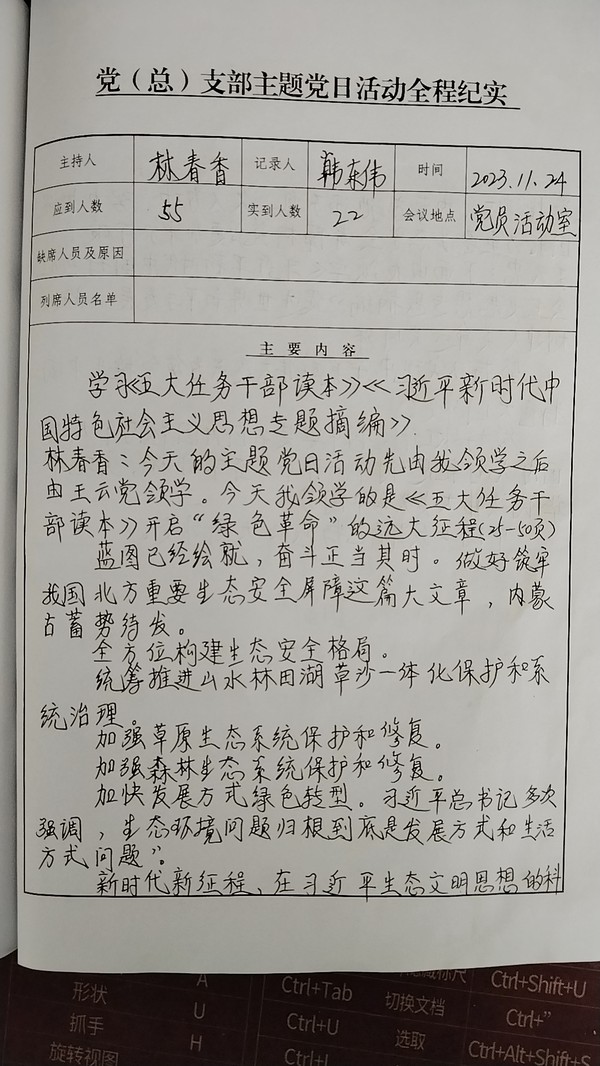 党（总）支部主题党日活动全程纪实
主持人 林春香 记录人 韩东伟 时间 2023.11.24
应到人数 55 实到人数 22 会议地点 党员活动室
缺席人员及原因
列席人员名单
主要内容
学习《五大任务干部读本》《习近平新时代中
国特色社会主义思想专题摘编》
林春香：今天的主题党日活动先由我领学之后
由王云党领学。今天我领学的是《五大任务干
部读本》开启“绿色革命”的远大征程(25-50页)
蓝图已经绘就，奋斗正当其时。做好筑牢
我国北方重要生态安全屏障这篇大文章，内蒙
古蓄势待发。
全方位构建生态安全格局。
统筹推进山水林田湖草沙一体化保护和系
统治理。
加强草原生态系统保护和修复。
加强森林生态系统保护和修复。
加快发展方式绿色转型。习近平总书记多次
强调，生态环境问题归根到底是发展方式和生活
方式问题”。
新时代新征程、在习近平生态文明思想的科
形状 A Ctrl+Tab 隐藏标尺 Ctrl+Shift+U
抓手 U Ctrl+U 切换文档 Ctrl+”
旋转视图 H 选取 Ctrl+Alt+Shift+S